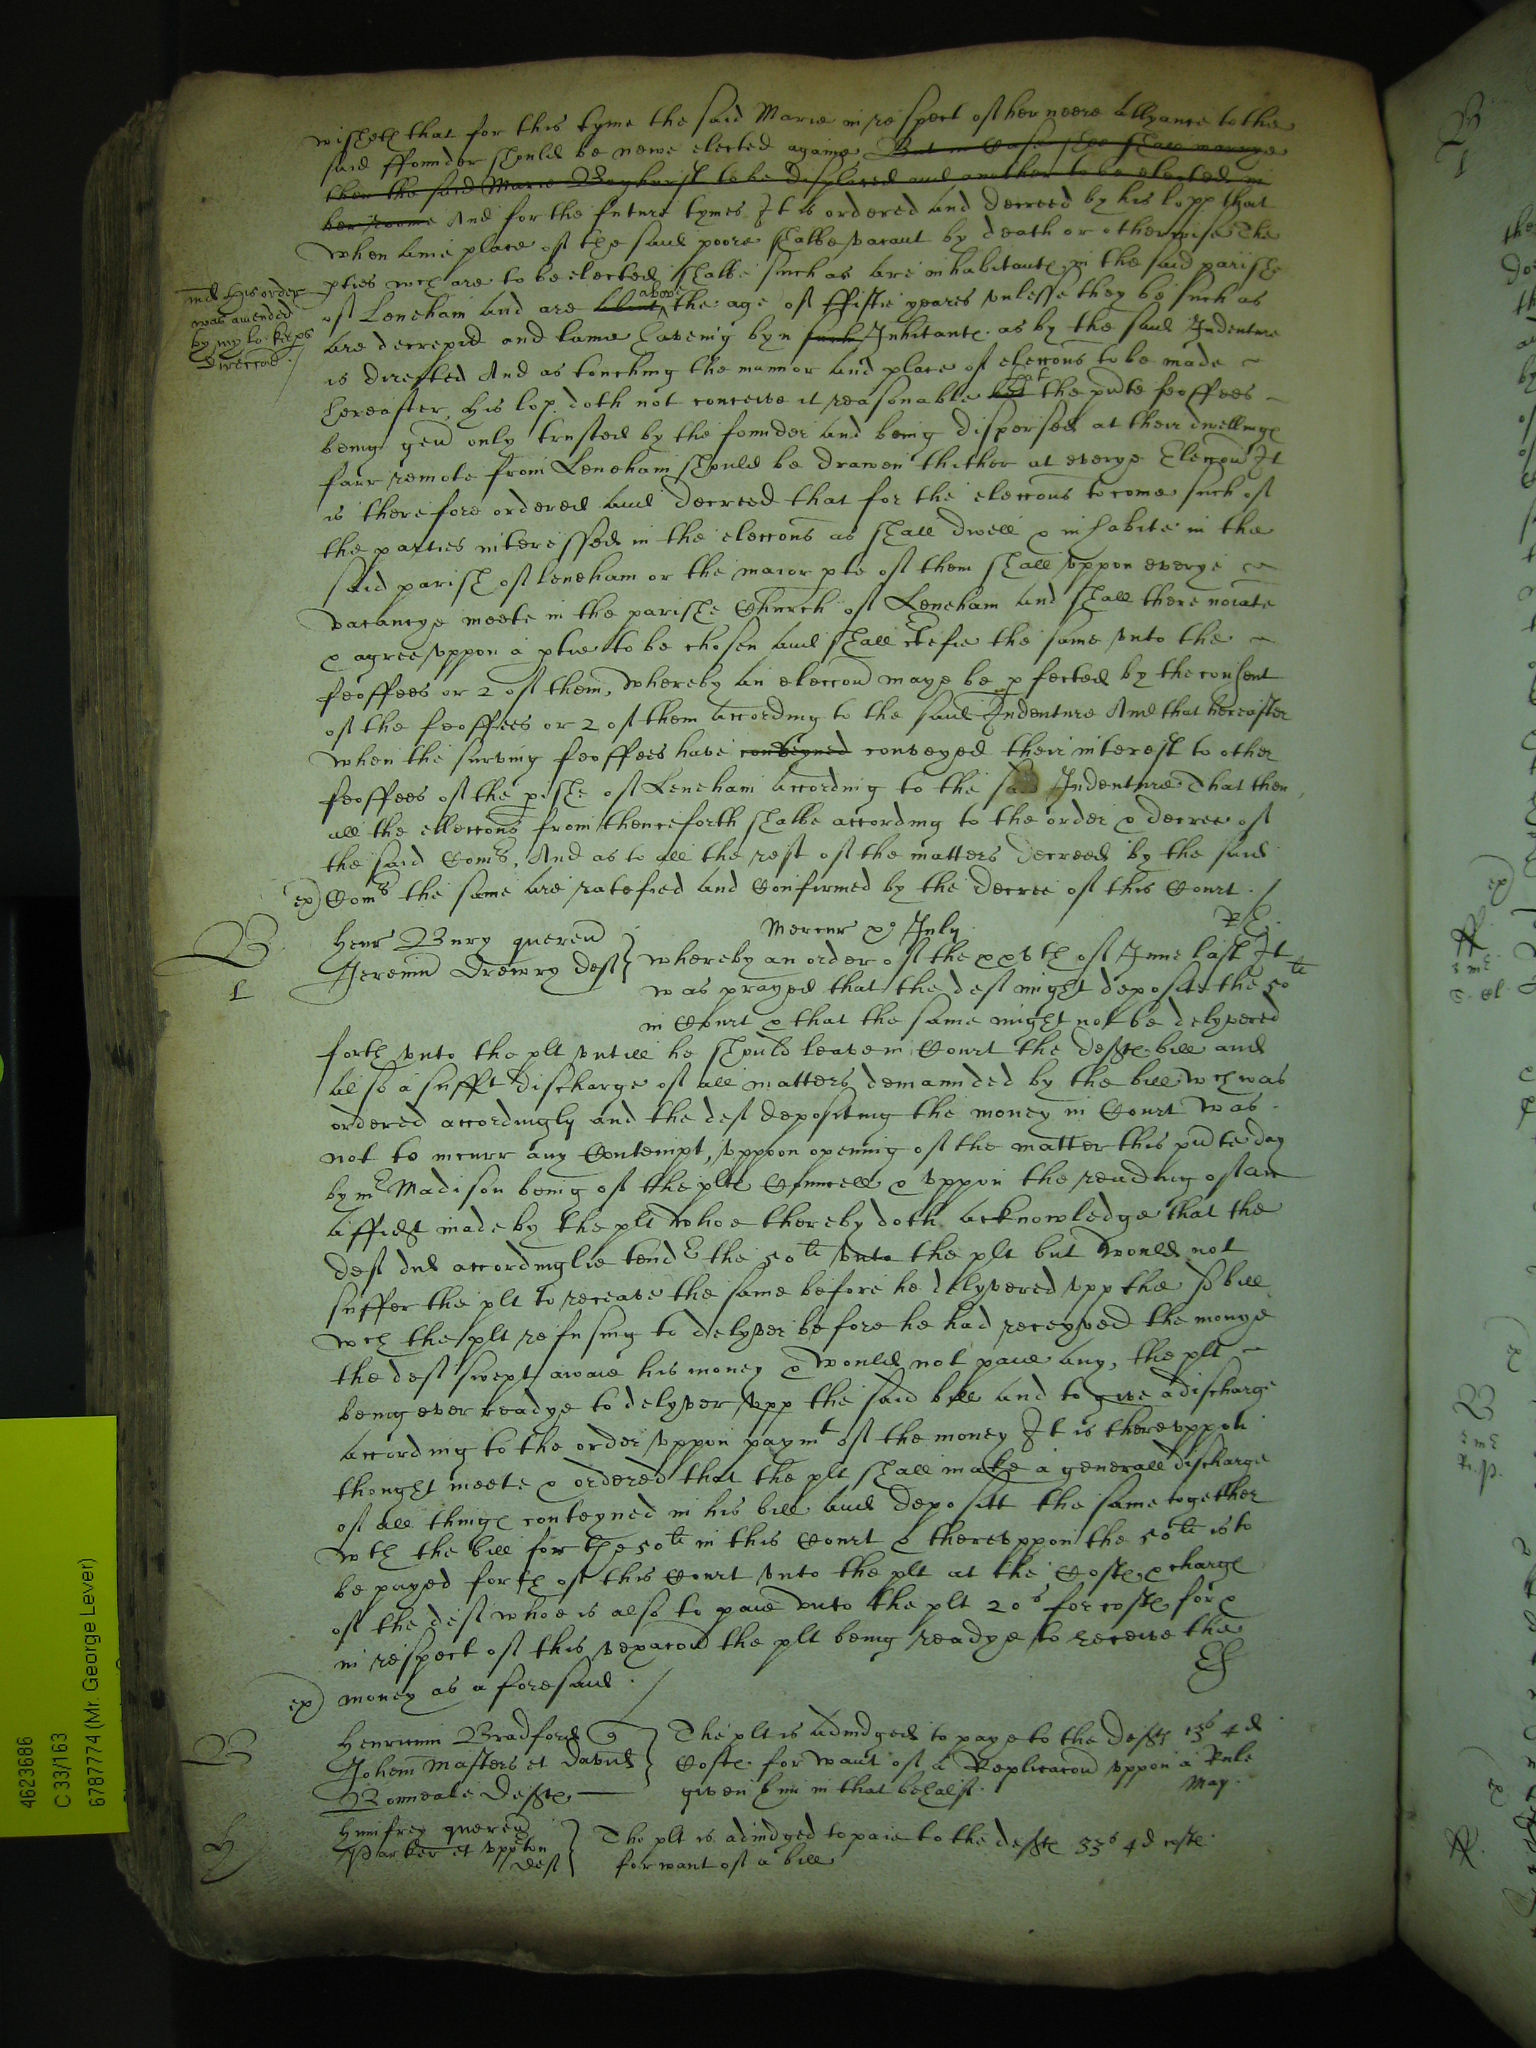 wisheth that for this tyme the said Marie in respect of her neere Allyance to the
said ffounder should be newe elected againe But in case shee shall marrye
then the said Marie to be displaced and another to be elected in
her roome And for the future tymes It is ordered and decreed by his lopp that
when anie place of the said poore shalbe vacant by death or otherwise The
pties wch are to be elected shalbe such as are inhabitants in the said parishe
md this order
was amended
by my lo: kepps
direccon
of Leneham and are about above the age of ffiftie yeares vnlesse they be such as
are decrepid and lame haveing byn such Inhitants as by the said Indenture
is directed And as touching the mannor and place of eleccons to be made
hereafter, his lop. doth not conceive it reasonable but that the pnte feoffees
being gen only trusted by the founder and being dispersed at their dwellings
farr remote from Leneham should be drawen thither at everye Eleccon It
is therefore ordered and decreed that for the eleccons to come such of
the parties interessed in the eleccons as shall dwell & inhabite in the
said parish of leneham or the maior pte of them shall vppon everye
vacancye meete in the parishe Church of Leneham and shall there noiate
& agree vppon a ptie to be chosen and shall ctefie the same vnto the
feoffees or 2 of them, whereby an eleccon maye be pfected by the consent
of the feoffees or 2 of them according to the said Indenture And that hereafter
when the surving feoffees have conveyned conveyed their interest to other
feoffees of the pishe of Leneham according to the said Indenture That then
all the elleccons from thenceforth shalbe according to the order & decree of
the said Coms, And as to all the rest of the matters decreed by the said
ex) Coms the same are ratefied and Confirmed by the decree of this Court.
Mercur xo July
B
1
Henr Bury queren
Jeremin Drewry deft
whereby an order of the xxvth of June last It
was prayed that the deft might deposite the 50li
in Court & that the same might not be delyvered
forth vnto the plt vntill he should leave in Court the defts bill and
also a sufft discharge of all matters demaunded by the bill wch was
ordered accordingly and the deft depositing the money in Court was
not to incurr any Contempt, vppoon opening of the matter this pnte day
by mr Madison being of the plts Councell & vppon the reading of an
affidt made by the plt whoe thereby doth acknowledge that the
deft did accordinglie tend the 50li vnto the plt but would not
suffer the plt to receave the same before he delyvered vpp the sd bill
wch the plt refusing to delyver before he had receyved the monye
the deft swept awaie his money & would not paie any, the plt
being ever readye to delyver vpp the said bill and to give a discharge
according to the order vppon paymt of the money It is therevppon
thought meete & ordered that the plt shall make a generall discharge
of all things conteyned in his bill and depositt the same together
wth the bill for the 50li in this Court & therevppon the 50li is to
be payed forth of this Court vnto the plt at the Costs & charge
of the deft whoe is also to paie vnto the plt 20s for costs for &
in respect of this vexacon the plt being readye to receive the
ex) money as aforesaid.
B
Henricum Bradford
Johem Masters et David
Romneale defts
The plt is adiudged to paye to the defts 13s 4d
Costs for want of a Replicacon vppon a Rule
given him in that behalfe. May.
H
Humfrey queren
Parker et vppton
deft
The plt is adiudged to paie to the defts 33s 4d costs
for want of a bill
4623686
C 33/163
6787774 (Mr. George Lever)